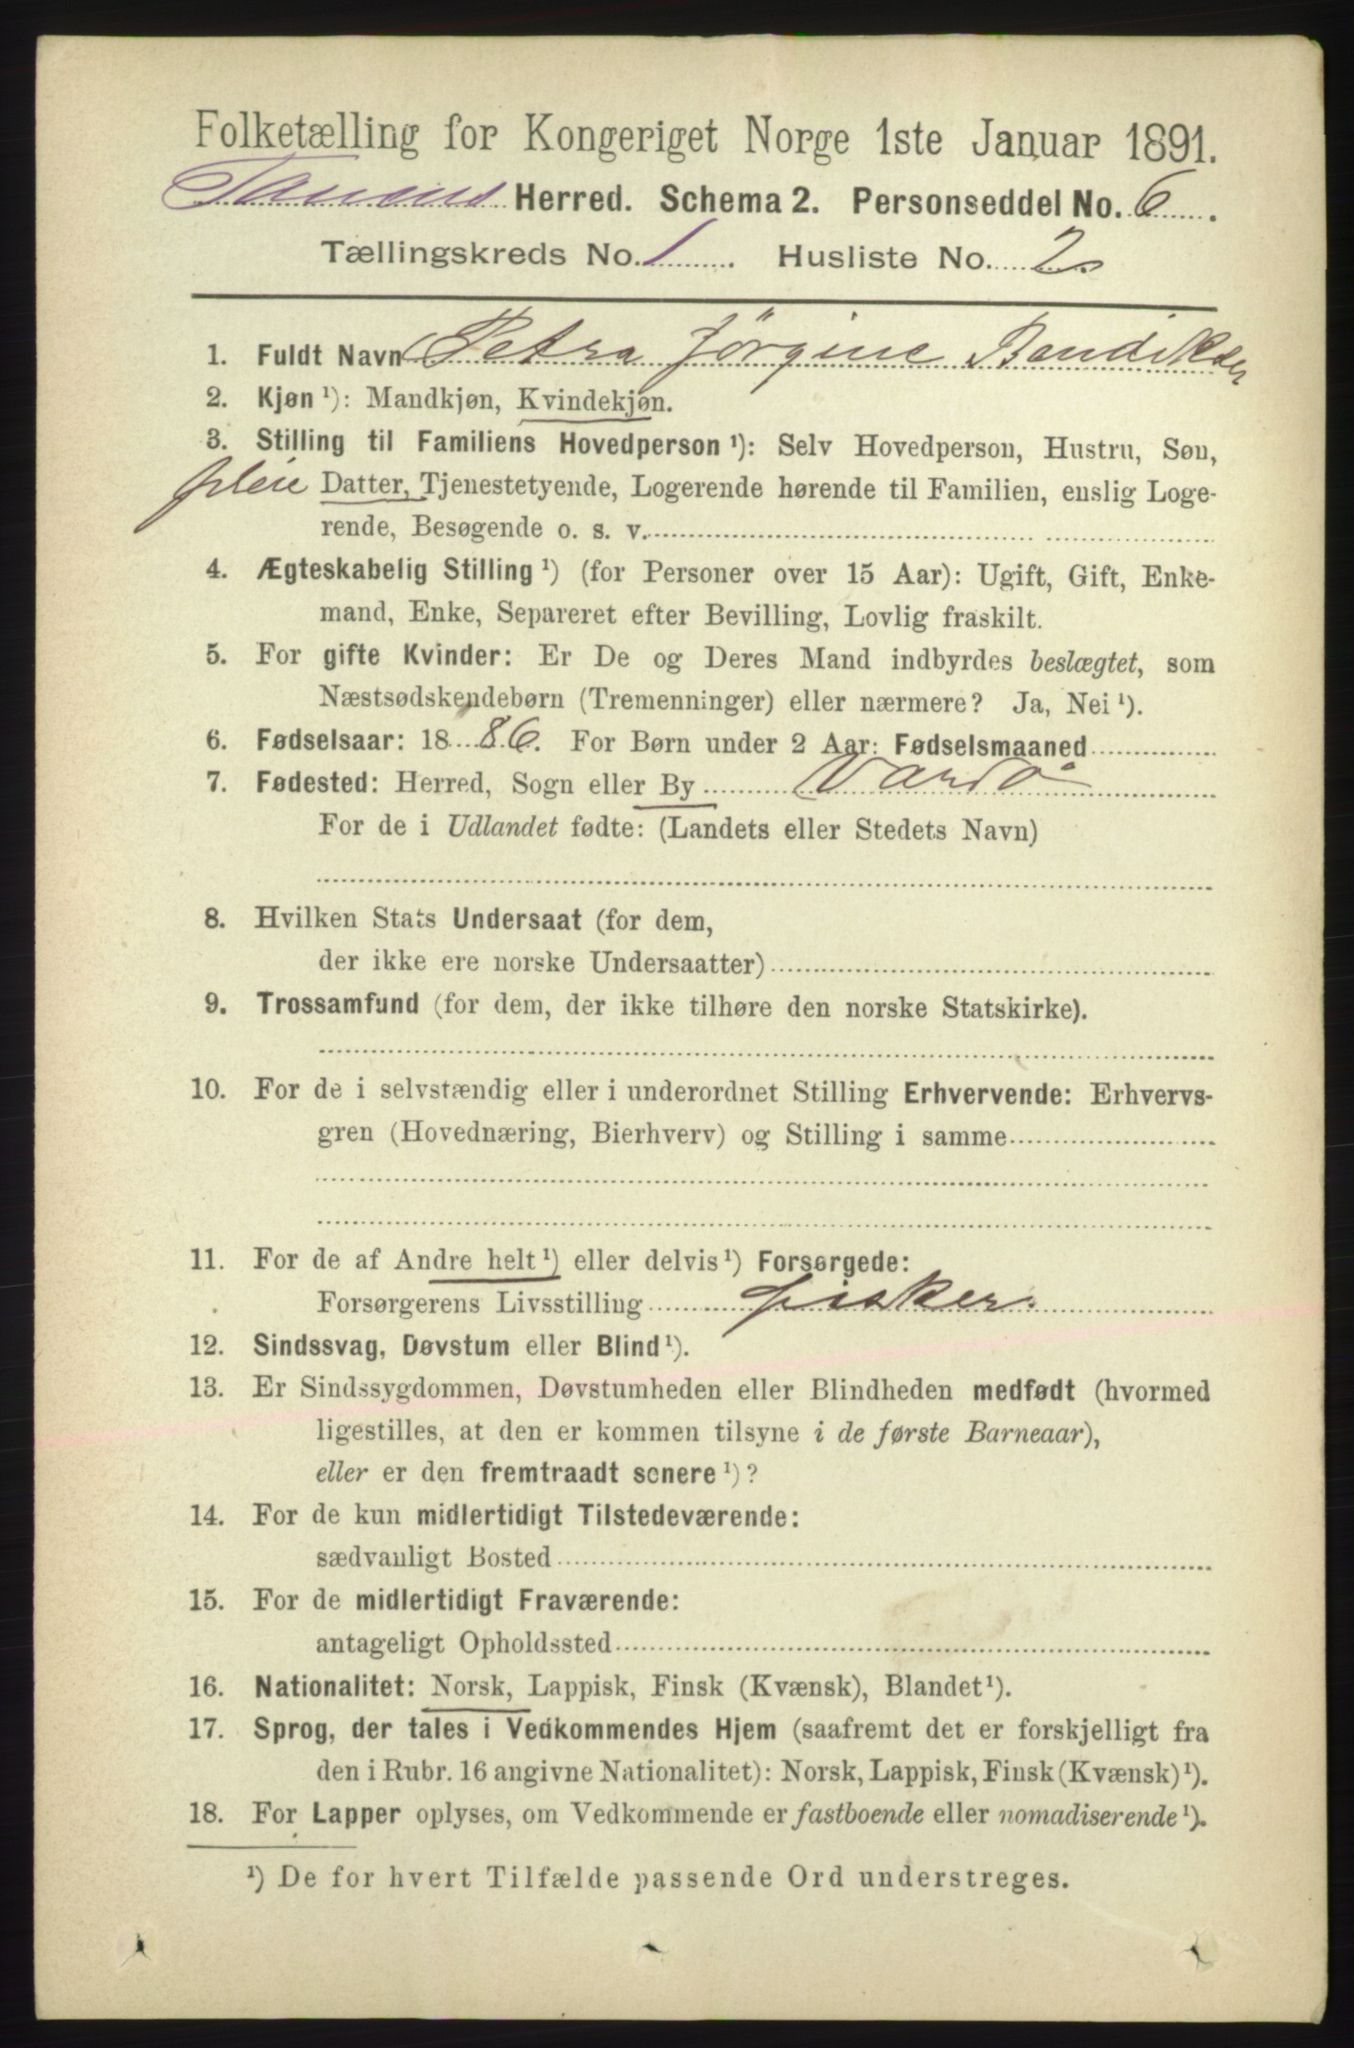 Folketælling for Kongeriget Norge 1ste Januar 1891.
Tanens Herred. Schema 2. Personseddel No. 6.
Tællingskreds No. 1. Husliste No. 2.
1. Fuldt Navn Petra Jørgine Bendikder
2. Kjøn ¹): Mandkjøn, Kvindekjøn.
3. Stilling til Familiens Hovedperson ¹): Selv Hovedperson, Hustru, Søn,
pleie Datter, Tjenestetyende, Logerende hørende til Familien, enslig Loge-
rende, Besøgende o. s. v.
4. Ægteskabelig Stilling ¹) (for Personer over 15 Aar): Ugift, Gift, Enke-
mand, Enke, Separeret efter Bevilling, Lovlig fraskilt.
5. For gifte Kvinder: Er De og Deres Mand indbyrdes beslægtet, som
Næstsødskendebørn (Tremenninger) eller nærmere? Ja, Nei ¹).
6. Fødselsaar: 18 86. For Børn under 2 Aar: Fødselsmaaned
7. Fødested: Herred, Sogn eller By Vardø
For de i Udlandet fødte: (Landets eller Stedets Navn)
8. Hvilken Stats Undersaat (for dem,
der ikke ere norske Undersaatter)
9. Trossamfund (for dem, der ikke tilhøre den norske Statskirke).
10. For de i selvstændig eller i underordnet Stilling Erhvervende: Erhvervs-
gren (Hovednæring, Bierhverv) og Stilling i samme
11. For de af Andre helt ¹) eller delvis ¹) Forsørgede:
Forsørgerens Livsstilling fisker.
12. Sindssvag, Døvstum eller Blind ¹).
13. Er Sindssygdommen, Døvstumheden eller Blindheden medfødt (hvormed
ligestilles, at den er kommen tilsyne i de første Barneaar),
eller er den fremtraadt senere ¹)?
14. For de kun midlertidigt Tilstedeværende:
sædvanligt Bosted
15. For de midlertidigt Fraværende:
antageligt Opholdssted
16. Nationalitet: Norsk, Lappisk, Finsk (Kvænsk), Blandet ¹).
17. Sprog, der tales i Vedkommendes Hjem (saafremt det er forskjelligt fra
den i Rubr. 16 angivne Nationalitet): Norsk, Lappisk, Finsk (Kvænsk) ¹).
18. For Lapper oplyses, om Vedkommende er fastboende eller nomadiserende ¹).
¹) De for hvert Tilfælde passende Ord understreges.